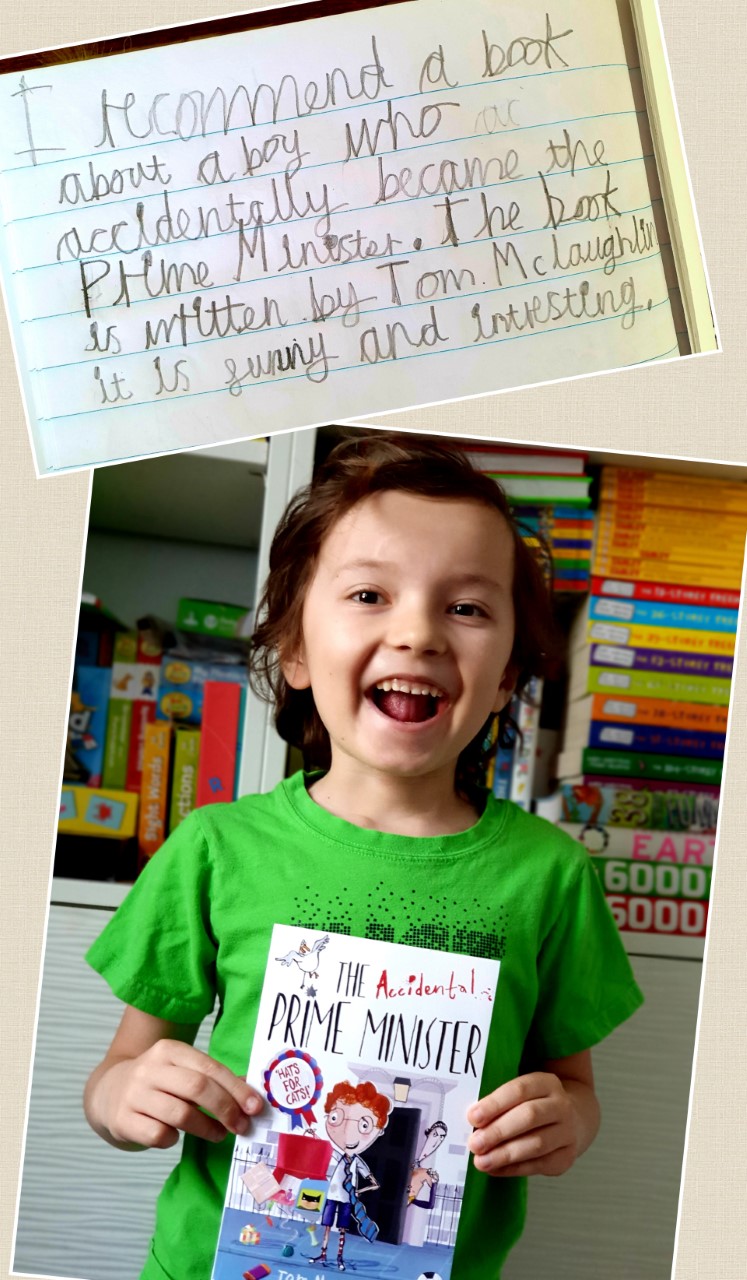 I recommend a book
about a boy who ac
accidentally became the
Prime Minister. The book
is written by Tom Mclaughlin
it is sunny and intresting.
Sight Words
EAR
6000
6000
THE Accidental
PRIME MINISTER
'HATS
FOR
CATS!'